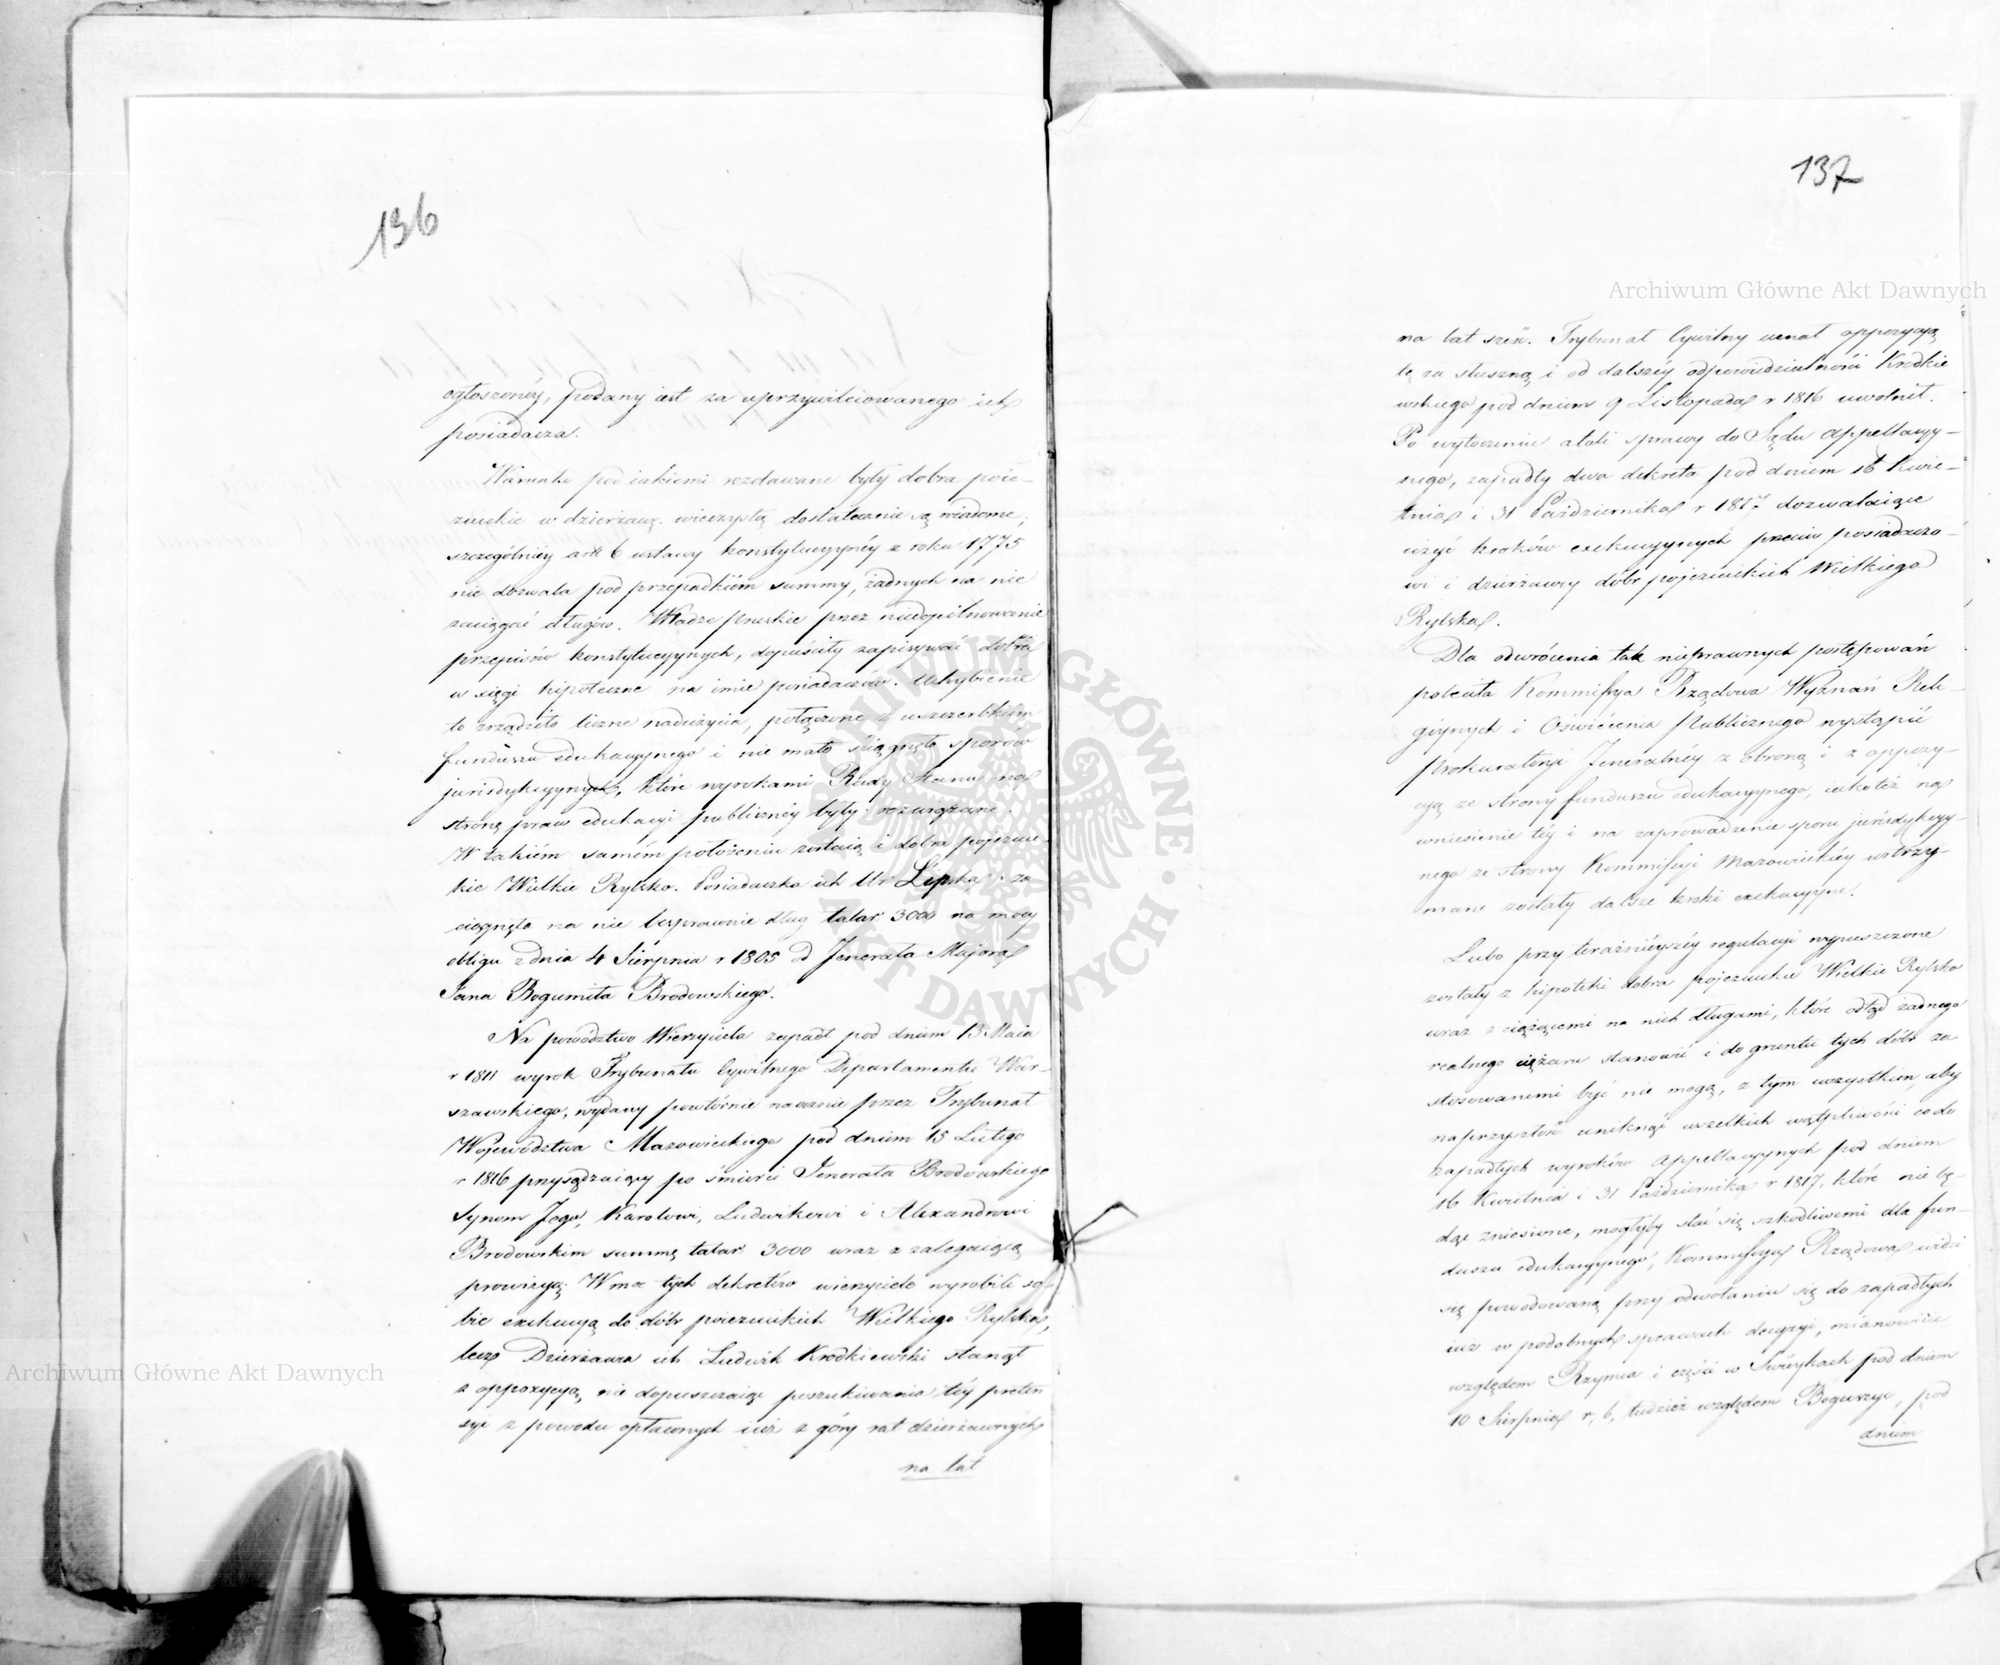 136
ogłoszonéy, podany iest za uprzywileiowanego ich
posiadacza.
Warunki pod iakiemi rozdawane były dobra poie-
zuickie w dzierżawę wieczystą dostatecznie są wiadome;
szczególniéy art. 6 ustawy konstytucyynéy z roku 1775
nie dozwala pod przepadkiém summy, żadnych na nie
zaciągać długów. Władze pruskie przez niedopilnowanie
przepisów konstytucyynych, dopuściły zapisywać dobra
w xięgi hipoteczne na imie posiadaczów. Uchybienie
to zrządziło liczne nadużycia, połączone z uszczerbkiem
funduszu edukacyynego i nie mało ściągnęło sporów
jurisdykcyynych, które wyrokami Rady Stanu na
stronę praw edukacyi publicznéy były rozwiązane.
W takiém samém położeniu zostaią i dobra pojezuic-
kie Wielkie Rylsko. Posiadaczka ich Ur Lipska za-
ciągnęła na nie bezprawnie dług talar 3000 na mocy
obligu z dnia 4 Sierpnia r 1805 od Jenerała Majora
Jana Bogumiła Brodowskiego.
Na powództwo Wierzyciela zapadł pod dniem 13 Maia
r 1811 wyrok Trybunału Cywilnego Departamentu War-
szawskiego, wydany powtórnie naocznie przez Trybunał
Województwa Mazowieckiego pod dniem 15 Lutego
r 1816 przysądzaiący po śmierci Jenerała Brodowskiego
Synom Jego, Karolowi, Ludwikowi i Alexandrowi
Brodowskim summę talar. 3000 wraz z zalegaiącą
prowizyą. W moc tych dekretów wierzyciele wyrobili so-
bie exekucyą do dóbr poiezuickich Wielkiego Rylska,
lecz Dzierżawca ich Ludwik Krodkiewski stanął
z oppozycyą, nie dopuszczaiąc poszukiwania téy preten
syi z powodu opłaconych iuż z góry rat dzierżawnych
na lat
137
na lat sześć. Trybunał Cywilny uznał oppozycyą
tę za słuszną i od dalszéy odpowiedzialności Krodkie
wskiego pod dniem 9 Listopada r 1816 uwolnił.
Po wytoczeniu atoli sprawy do Sądu Appellacyy-
nego, zapadły dwa dekreta pod dniem 16 Kwie-
tnia i 31 Października r 1817 dozwalaiące
użyć kroków exekucyynych przeciw posiadaczo-
wi i dzierżawcy dóbr pojezuickich Wielkiego
Rylska.
Dla odwrócenia tak nieprawnych postępowań
poleciła Kommissya Rządowa Wyznań Reli-
giynych i Oświécenia Publicznego wystąpić
Prokuratoryi Jeneralnéy z obroną i z oppozy-
cyą ze strony funduszu edukacyynego, iakoteż na
wniesienie téy i na zaprowadzenie sporu jurisdykcyy-
nego ze strony Kommissyi Mazowieckiéy wstrzy-
mane zostały dalsze kroki exekucyyne.
Lubo przy teraźnieyszéy regulacyi wypuszczone
zostały z hipoteki dobra pojezuickie Wielkie Rylsko
wraz z ciążącemi na nich długami, które odtąd żadnego
realnego ciężaru stanowić i do gruntu tych dóbr za
stosowanemi być nie mogą, z tym wszystkim, aby
naprzyszłość uniknąć wszelkich wątpliwości co do
zapadłych wyroków Appellacyynych pod dniem
16 Kwietnia i 31 Października r 1817, które nie bę-
dąc zniesione, mogłyby stać się szkodliwemi dla fun-
duszu edukacyynego, Kommissya Rządowa widzi
się powodowaną przy odwołaniu się do zapadłych
iuż w podobnych sprawach decyzyi, mianowicie
względem Rzymca i części w Swéykach pod dniem
10 Sierpnia r, b, tudzież względem Boguszyc, pod
dniem
Archiwum Główne Akt Dawnych
Archiwum Główne Akt Dawnych
ARCHIWUM GŁÓWNE · AKT DAWNYCH ·